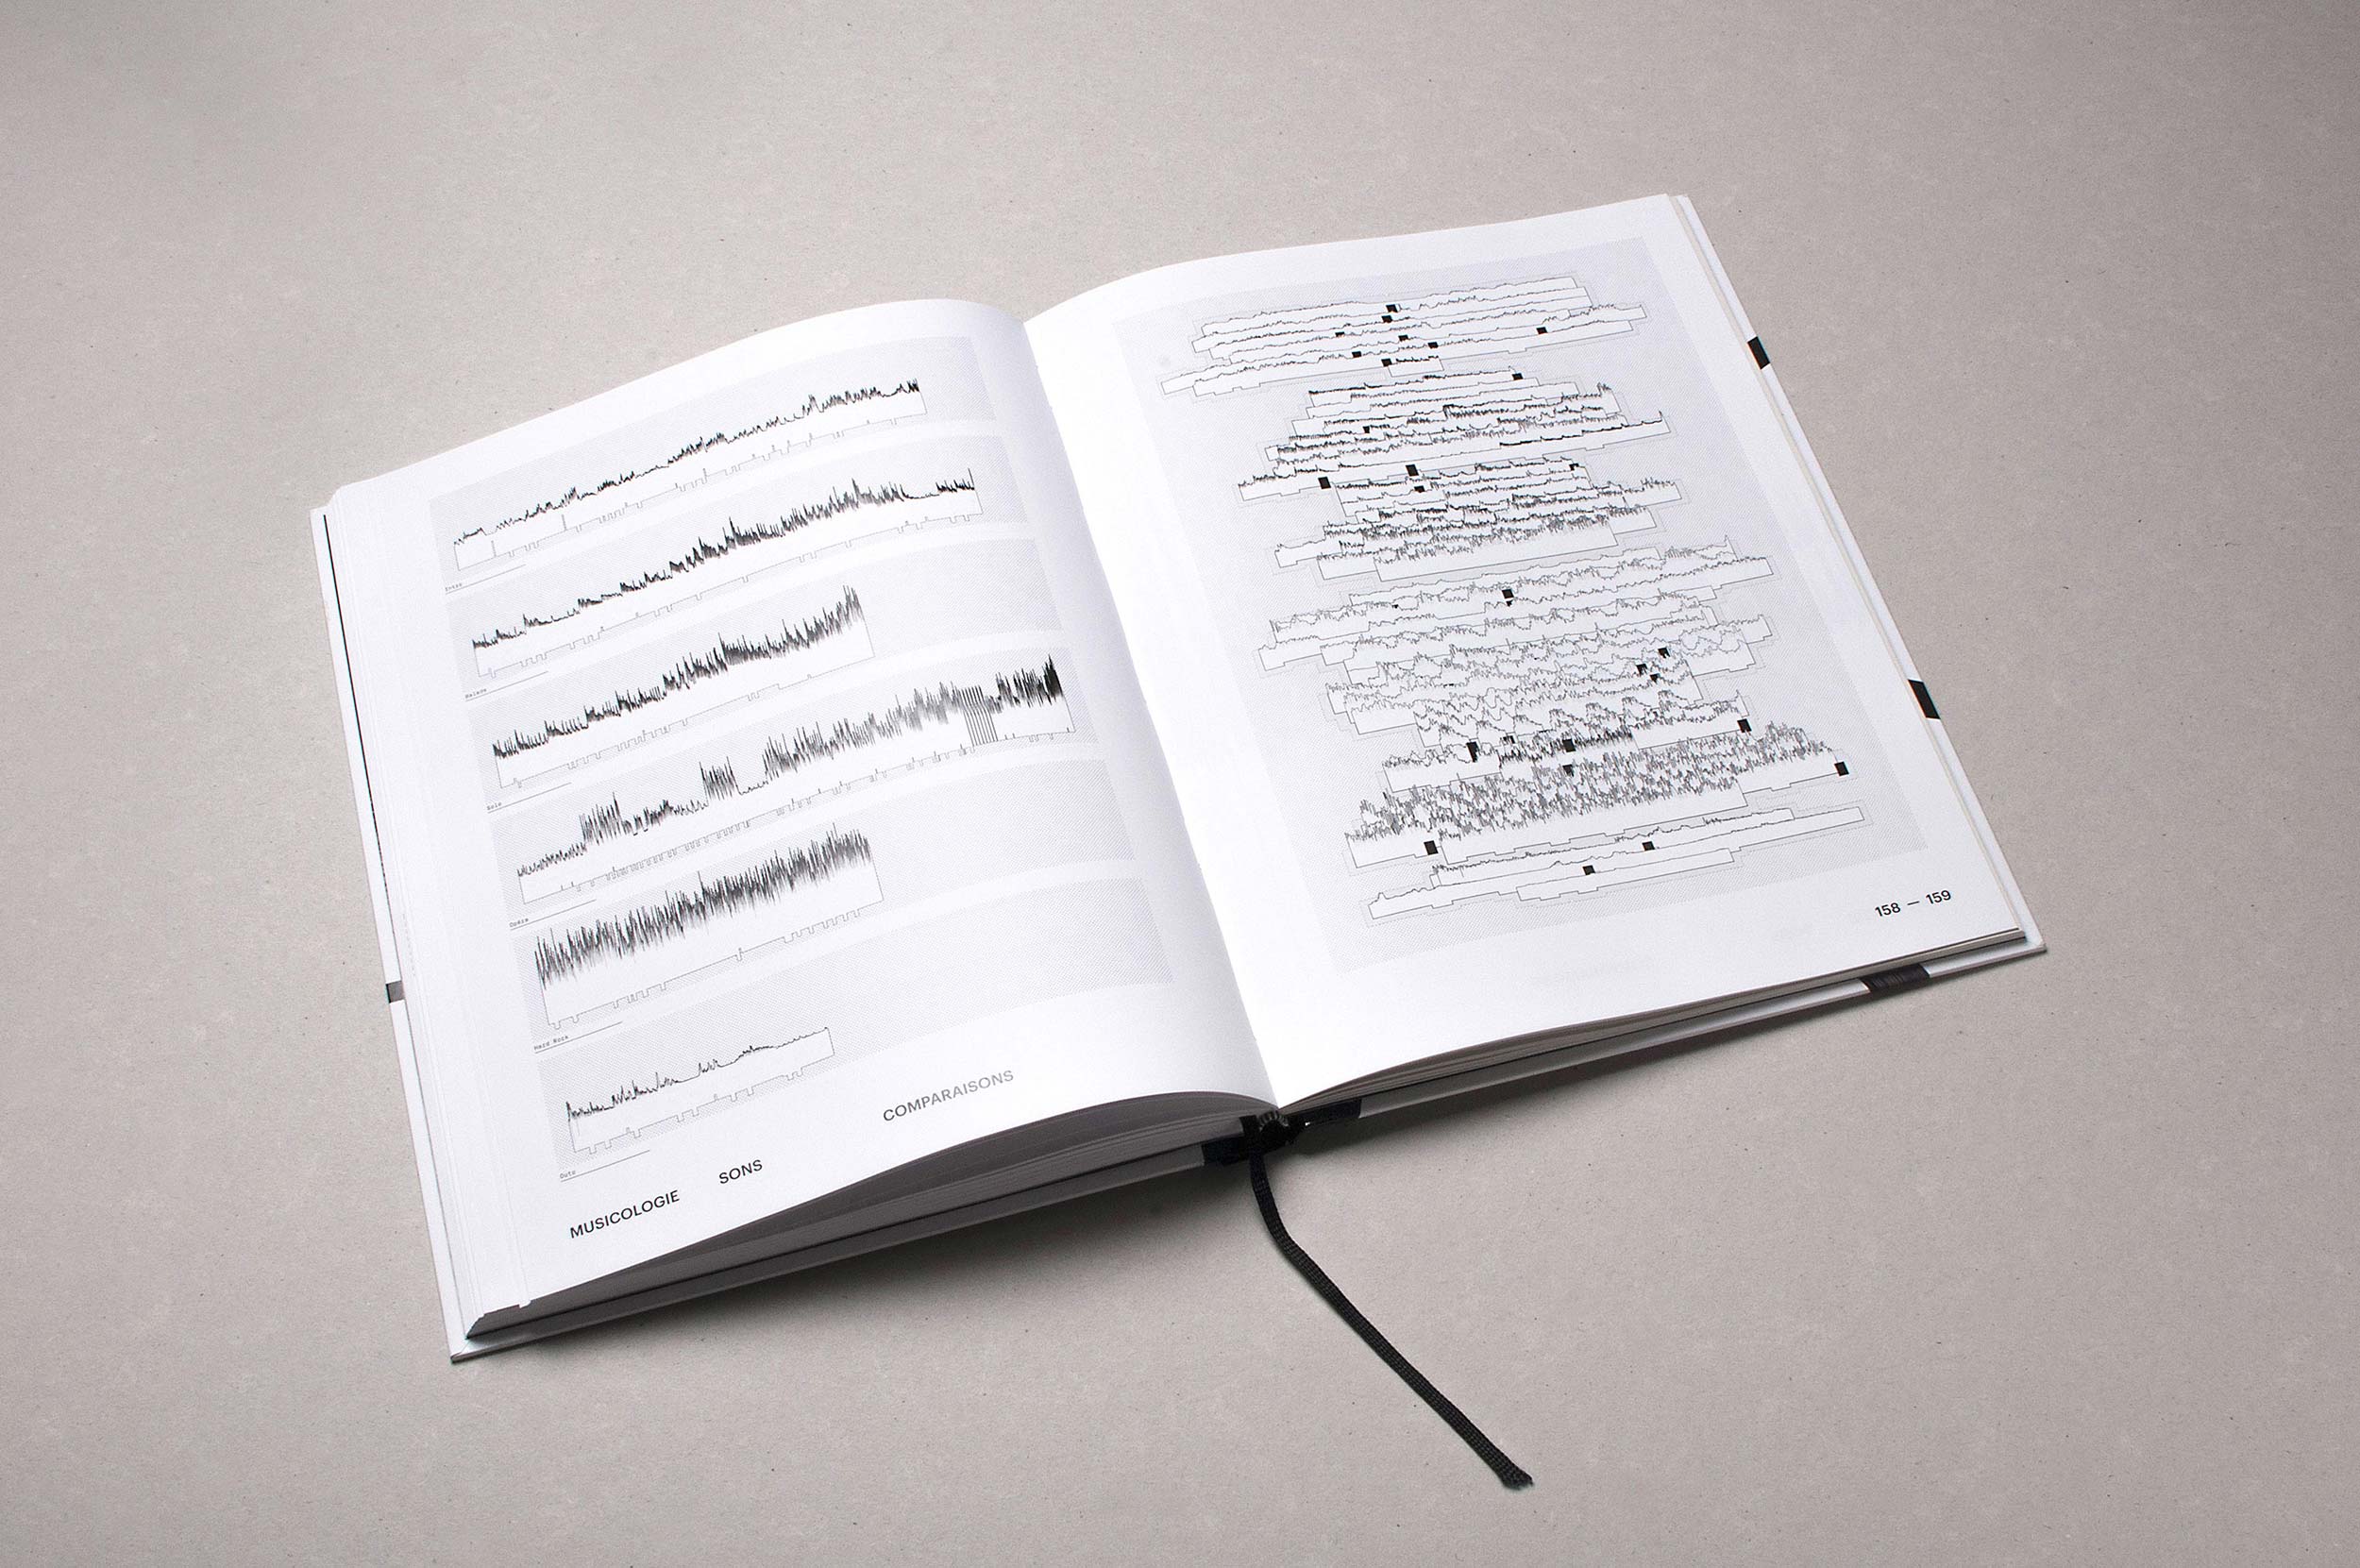 Intro
Balade
Solo
Opéra
Hard Rock
Outo
MUSICOLOGIE SONS COMPARAISONS
158 — 159